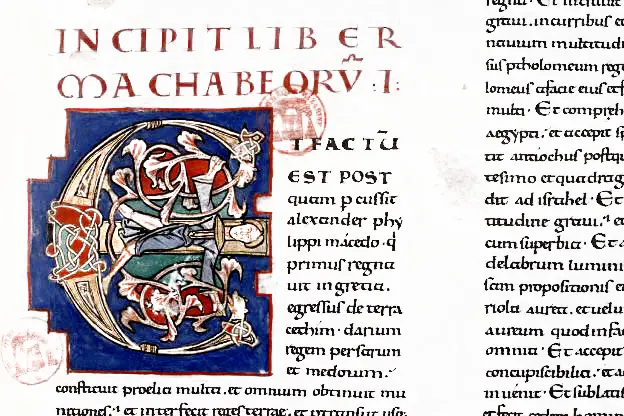 INCIPIT LIBER
MACHABEORV̄ · I ·
T FACTŪ
EST POST
quam pcussit
alexander phy
lippi macedo · q̇
primus regna
uit in grecia.
egressus de terra
cethim · darium
regem persarum
et medorum.
constituit proelia multa. et omnium obtinuit mu
nitiones. et interfecit reges terrae. et
graui. in curribus
nauium multitudi
sus ptholomeum rege
lomeus afacie eius
multi · Et compreh
aegypti. et accepit
tit antiochus postqu
tesimo et quadrag
dit ad israhel · Et
titudine graui. et
cum superbia · Et
delabrum lumini
sam propositionis
riola aurea. et
aureum quod in fac
omnia · Et accepit
concupiscibilia · et
inuenit · Et sublatis